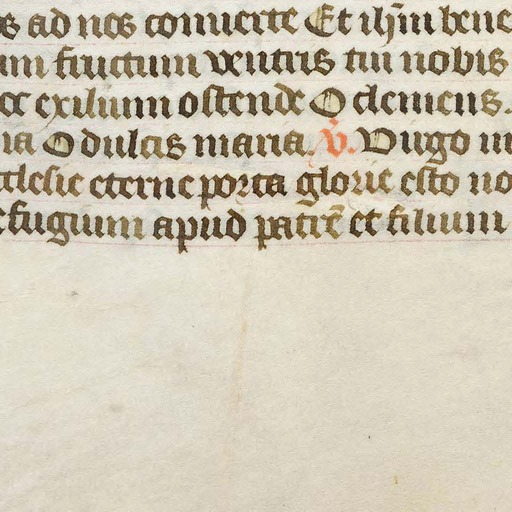 s ad nos conuerte Et ihm̄ bene
um fructum uentris tui nobis
ec exilium ostende O clemens.
ia O dulcis maria. v̄. Uirgo m
cclesie eterne porta glorie esto no
efugium apud patrē et filium